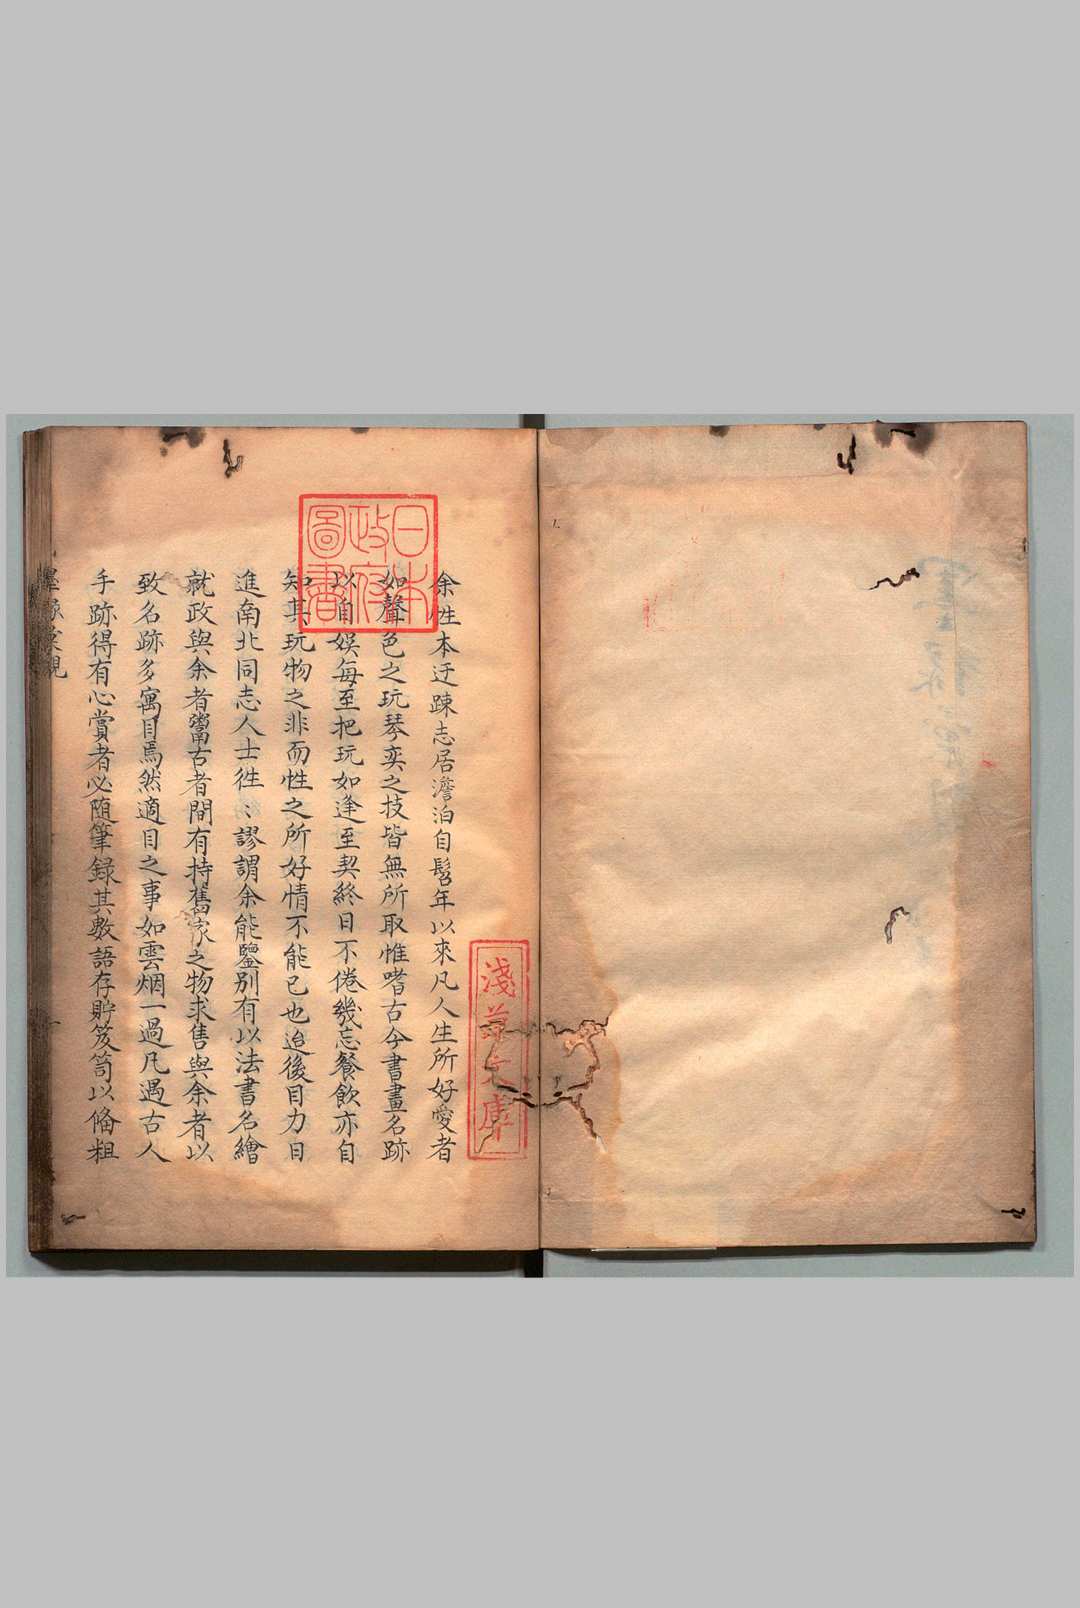 余性本迂踈志居澹泊自髫年以來凡人生所好愛者
如聲色之玩琴奕之技皆無所取惟嗜古今書畫名跡
以自娛每至把玩如逢至契終日不倦幾忘餐飲亦自
知其玩物之非而性之所好情不能已也迨後目力日
進南北同志人士徃〻謬謂余能鑒别有以法書名繪
就政與余者鬻古者間有持舊家之物求售與余者以
致名跡多寓目焉然適目之事如雲烟一過凡遇古人
手跡得有心賞者必随筆録其數語存貯笈笥以俻粗
墨緣彙觀
日本
政府
圖書
淺草文庫